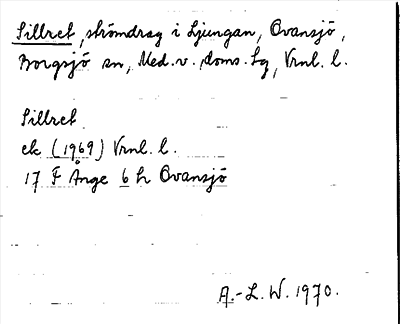 Sillret, strömdrag i Ljungan, Ovansjö,
Borgsjö sn, Med. v. doms. tg, Vrnl. l.
Sillret
ek (1969) Vrnl. l.
17 F Ånge 6 h Ovansjö
A.-L. W. 1970.